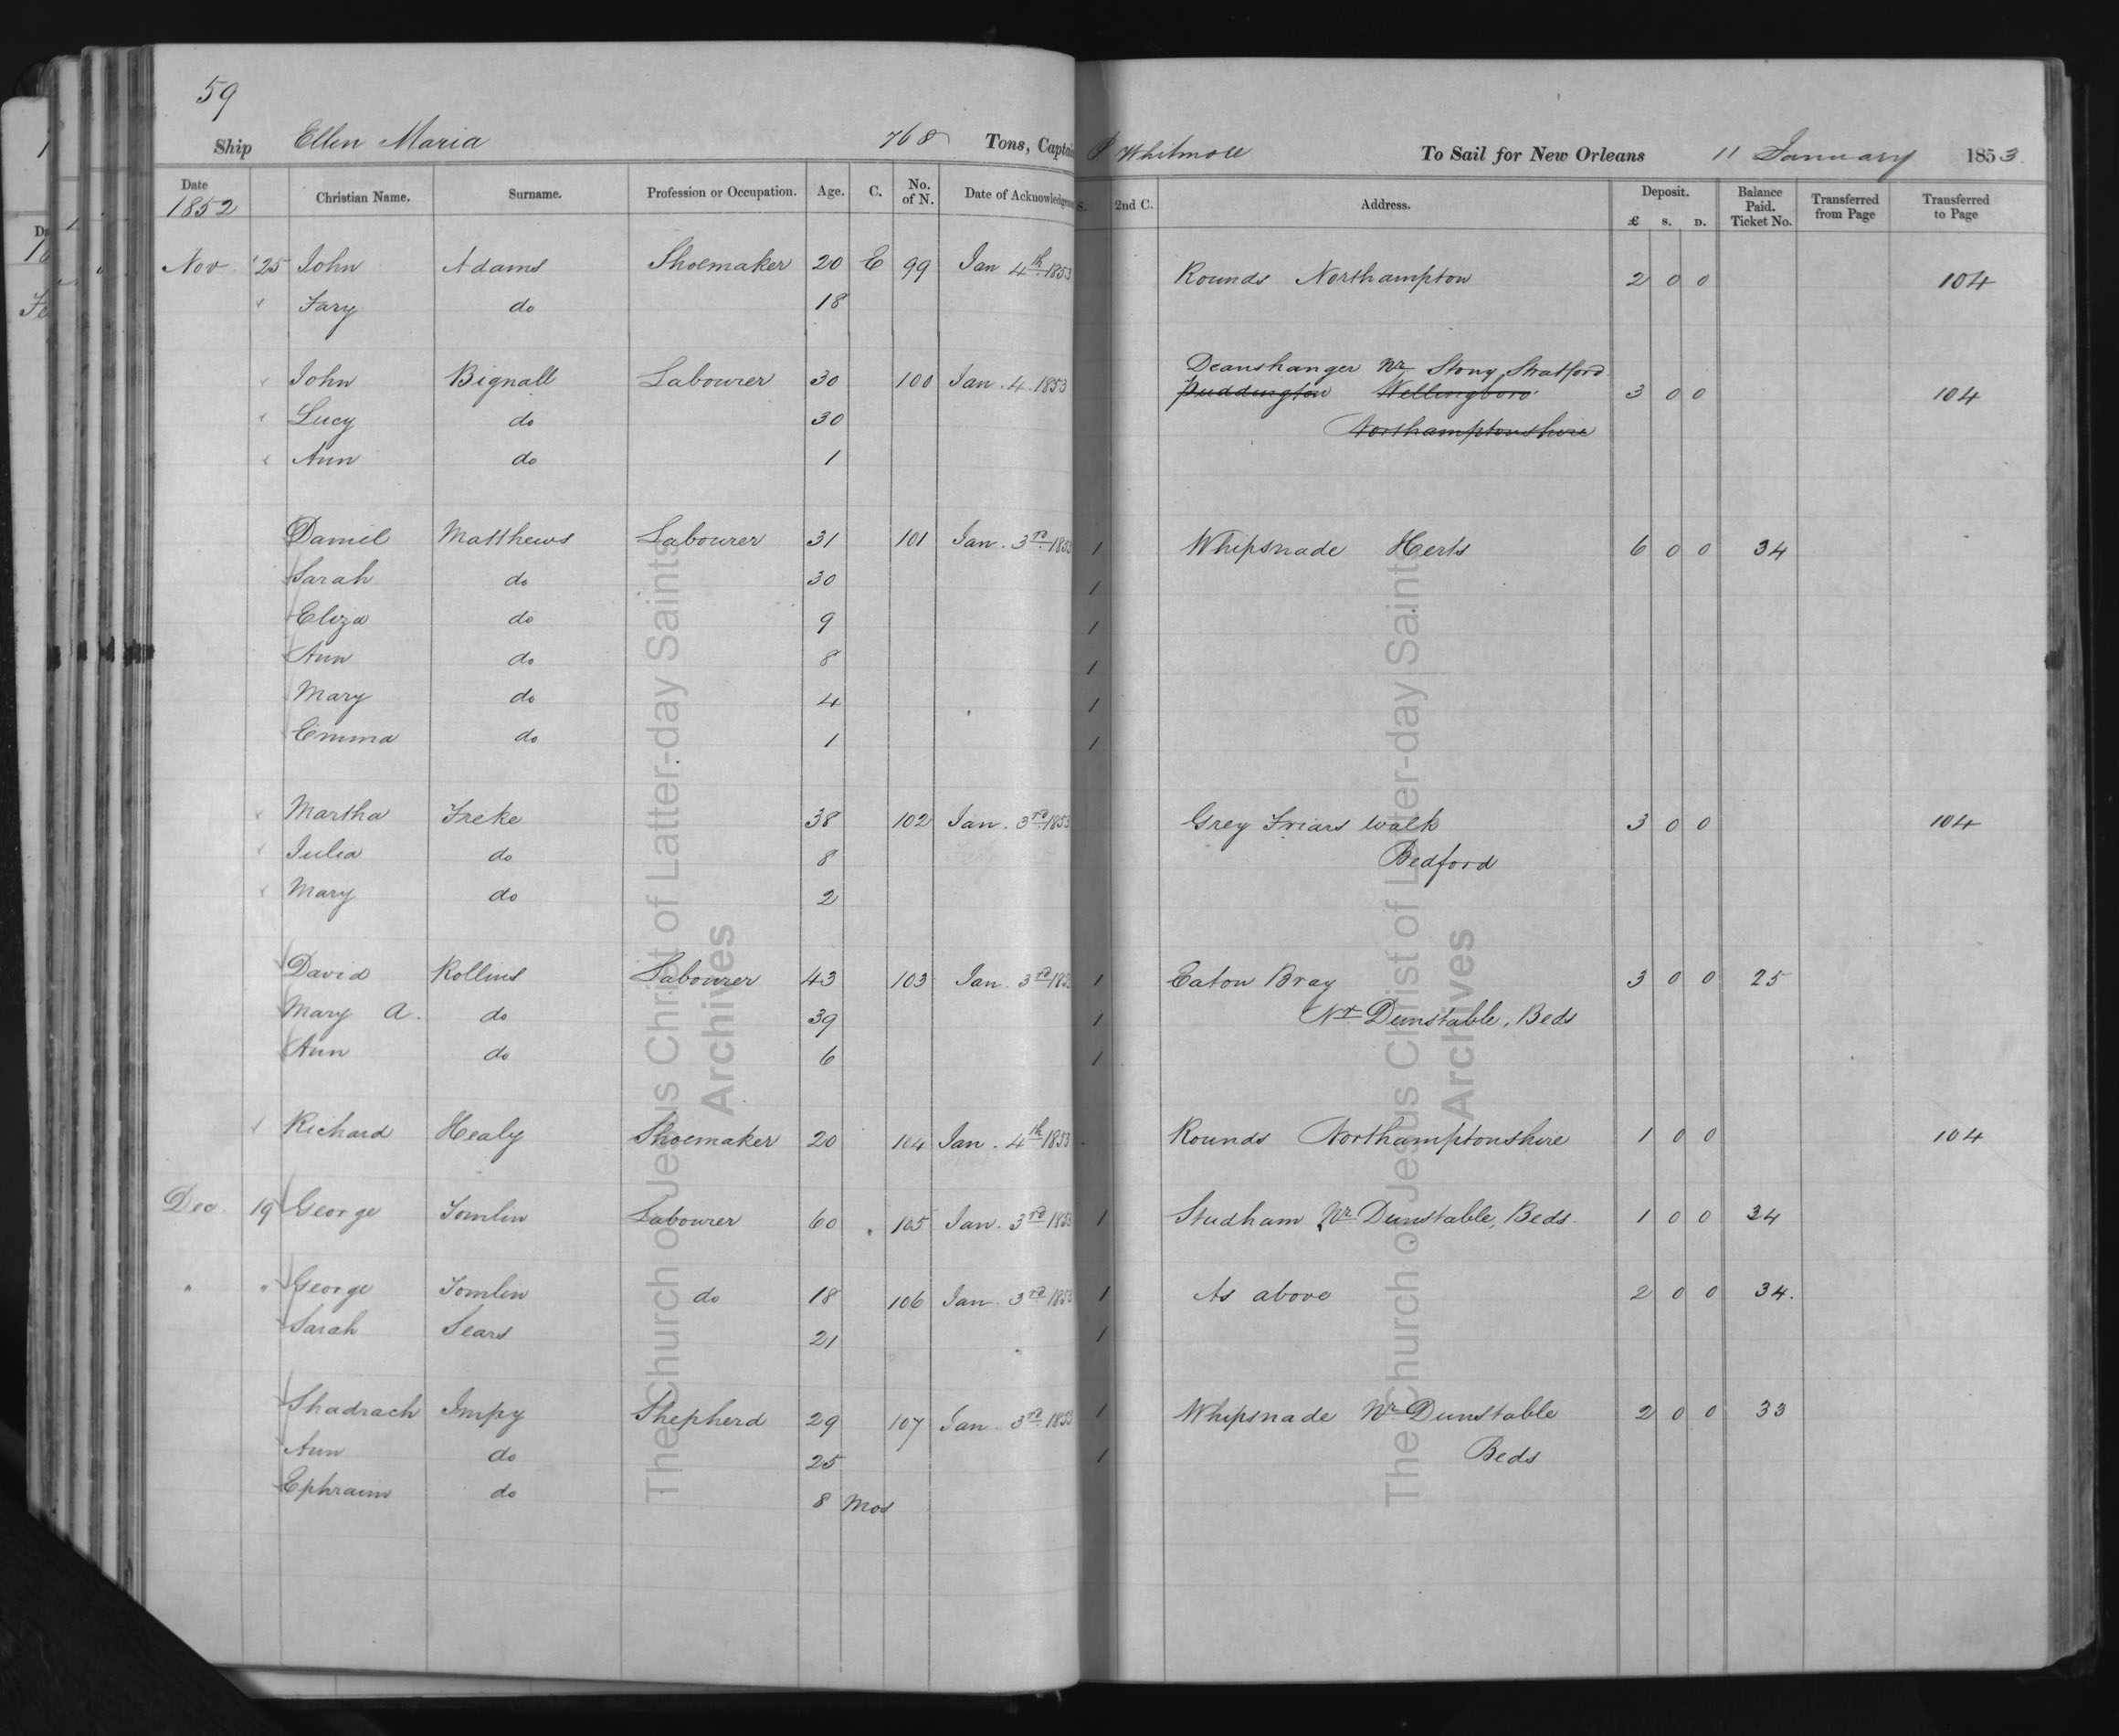 59
Ship Ellen Maria 768 Tons, Captain P Whitmore To Sail for New Orleans 11 January 1853
Date 1852 Christian Name. Surname. Profession or Occupation. Age. C. No. of N. Date of Acknowledgment S. 2nd C. Address. Deposit. £ s. D. Balance Paid. Ticket No. Transferred from Page Transferred to Page
Nov 25 John Adams Shoemaker 20 E 99 Jan 4th 1853 Rounds Northampton 2 0 0 104
Fary do 18
Deanshanger Nr Stony Stratford
John Bignall Labourer 30 100 Jan. 4. 1853 Puddington Wellingboro' 3 0 0 104
Lucy do 30 Northamptonshire
Ann do 1
Daniel Matthews Labourer 31 101 Jan. 3rd 1853 1 Whipsnade Herts 6 0 0 34
Sarah do 30 1
Eliza do 9 1
Ann do 8 1
Mary do 4 1
Emma do 1 1
Martha Freke 38 102 Jan. 3rd 1853 Grey Friars Walk 3 0 0 104
Julia do 8 Bedford
Mary do 2
David Rollins Labourer 43 103 Jan. 3rd 1853 1 Eaton Bray 3 0 0 25
Mary A. do 39 1 Nr Dunstable, Beds
Ann do 6 1
Richard Healy Shoemaker 20 104 Jan. 4th 1853 Rounds Northamptonshire 1 0 0 104
Dec. 19 George Tomlin Labourer 60 105 Jan. 3rd 1853 1 Studham Nr Dunstable, Beds. 1 0 0 34
" " George Tomlin do 18 106 Jan. 3rd 1853 1 As above 2 0 0 34.
Sarah Sears 21 1
Shadrach Impy Shepherd 29 107 Jan. 3rd 1853 1 Whipsnade Nr Dunstable 2 0 0 33
Ann do 25 1 Beds
Ephraim do 8 Mos
The Church of Jesus Christ of Latter-day Saints
Archives
The Church of Jesus Christ of Latter-day Saints
Archives